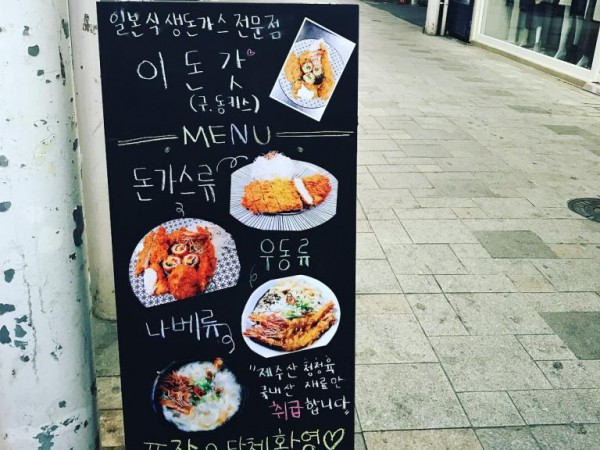 일본식 생돈가스 전문점
이돈갓
(구.동키스)
MENU
돈가스류
우동류
나베류
"제주산 청정육
국내산 재료만
취급합니다"
포장 단체환영♡